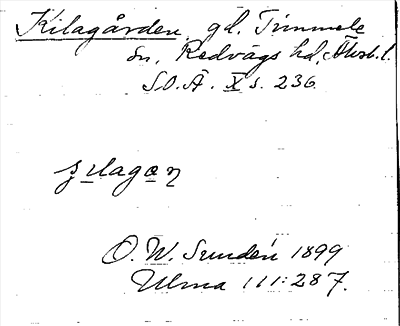 Kilagården, gd. Timmele
sn, Redvägs hd, Älvsb. l.
S.O.Ä. X s. 236
O. W. Sundén 1899
Ulma 111:287.